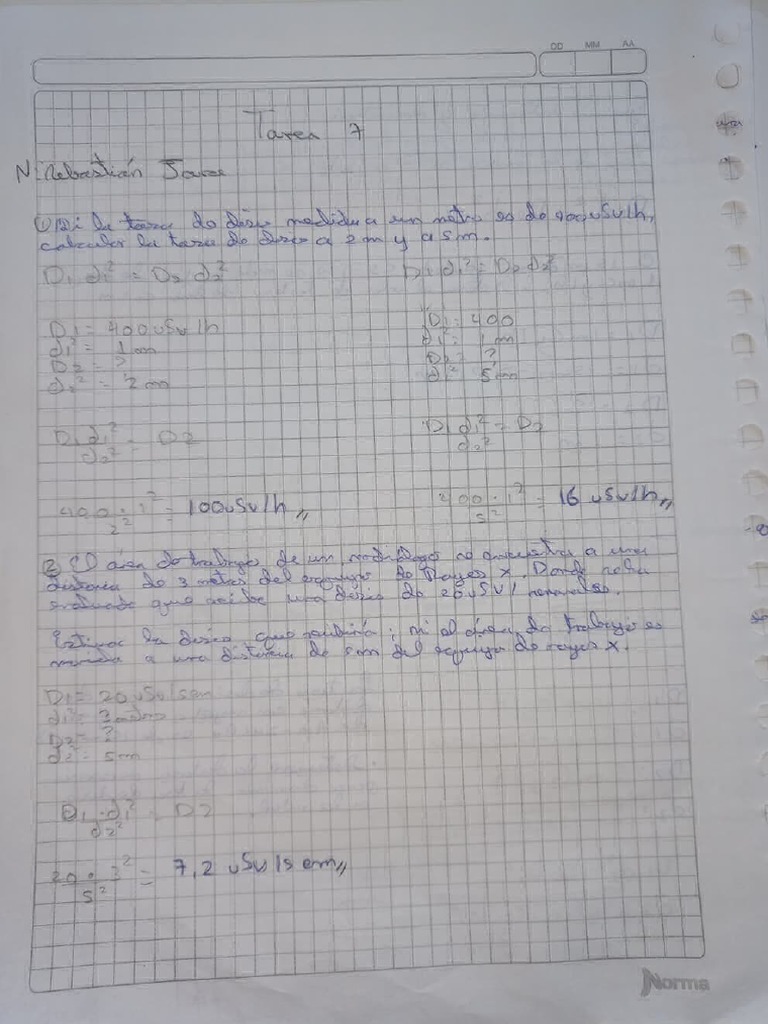 DD MM AA
Tarea 7
N: Sebastián
① Si la tasa de dosis medida a un metro es de 400 uSv/h,
calcular la tasa de dosis a 2m y a 5m.
D₁ d₁² = D₂ d₂² D₁ d₁² = D₂ d₂²
D₁ = 400 uSv/h D₁ = 400
d₁² = 1 m d₁² = 1 m
D₂ = ? D₂ = ?
d₂² = 2 m d₂² 5m
D₁ d₁² / d₂² = D2 D₁ d₁² / d₂² = D₂
400 · 1² / 2² = 100 uSv/h,, 400 · 1² / 5² = 16 uSv/h,,
② El área de trabajo de un se encuentra a una
distancia de 3 metros del equipo de Rayos X. Donde
que recibe una dosis de 20 uSv/
Estimar la dosis que recibirá, si el área de trabajo es
a una distancia de 5m del equipo de rayos X.
D₁ = 20 uSv/sem
d₁² = 3 metros
D₂ = ?
d₂² = 5m
D₁ · d₁² / d₂² = D2
20 · 3² / 5² = 7,2 uSv/sem,,
Norma